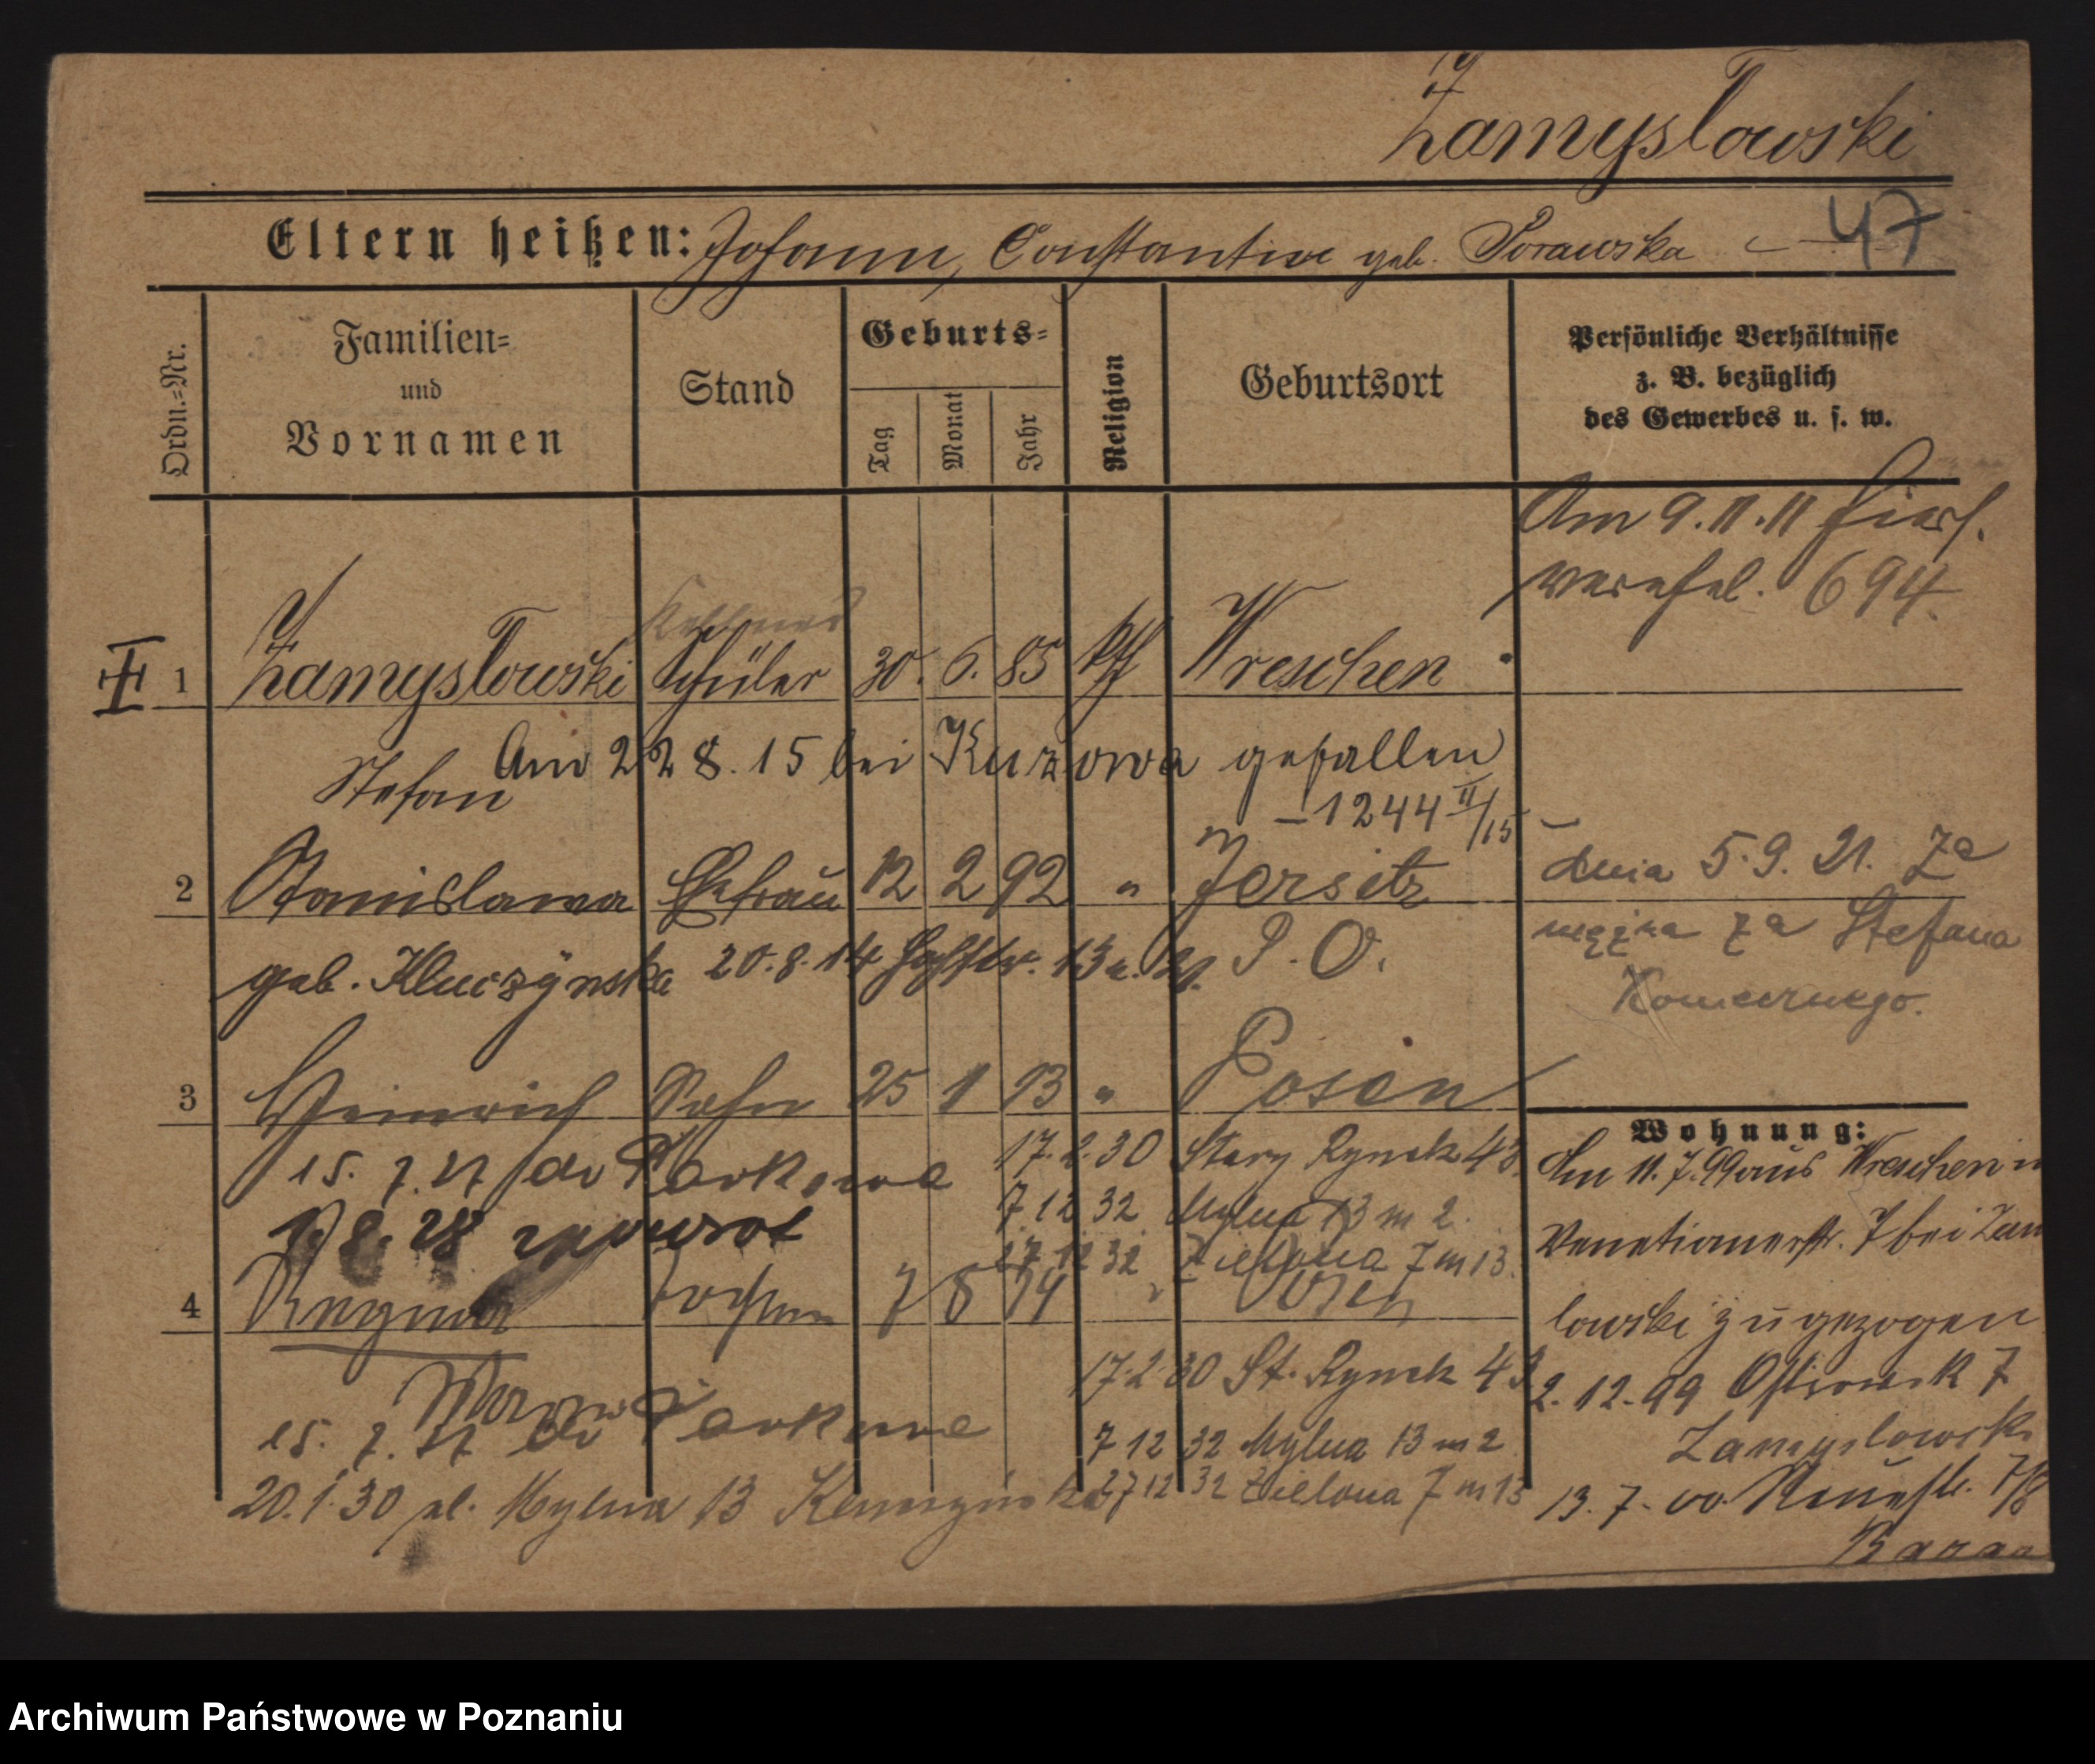 Zamysłowski
47
Eltern heißen: Johann, Constantine geb. Porawska
Ordn.-Nr.
Familien-
und
Vornamen
Stand
Geburts-
Tag
Monat
Jahr
Religion
Geburtsort
Persönliche Verhältnisse
z. B. bezüglich
des Gewerbes u. s. w.
Am 9.11.11 hiers.
verehel. 694.
Kellner
1 Zamysłowski Schüler 30. 6. 85 kth Wreschen
Stefan
Am 22 8. 15 bei Kurowa gefallen
– 1244 II/15 –
2 Stanislawa Ehefrau 12 2 92 " Jersitz
geb. Kluczÿnska 20.8.14 13 P. O.
dnia 5.9.21. Za
mężna za Stefana
3 Heinrich Sohn 25 1 13 " Posen
15. 7. 27 do
17.2.30 Stary Rynek 43
1. 8. 28 zpowrot
7 12 32 Mylna 13 m 2.
27 12 32 Zielona 7 m 13.
4 Tochter 7 8 14 " Posen
17.2.30 St. Rynek 43
15. 7. 27 do
7 12 32 Mylna 13 m 2
20.1.30 pl. Mylna 13
27 12 32 Zielona 7 m 13
Wohnung:
Am 11.7.99 aus Wreschen
Venetianerstr. 7 bei Zam
lowski zugezogen
2.12.99 7
Zamyslowski
13. 7. 00. 7/8